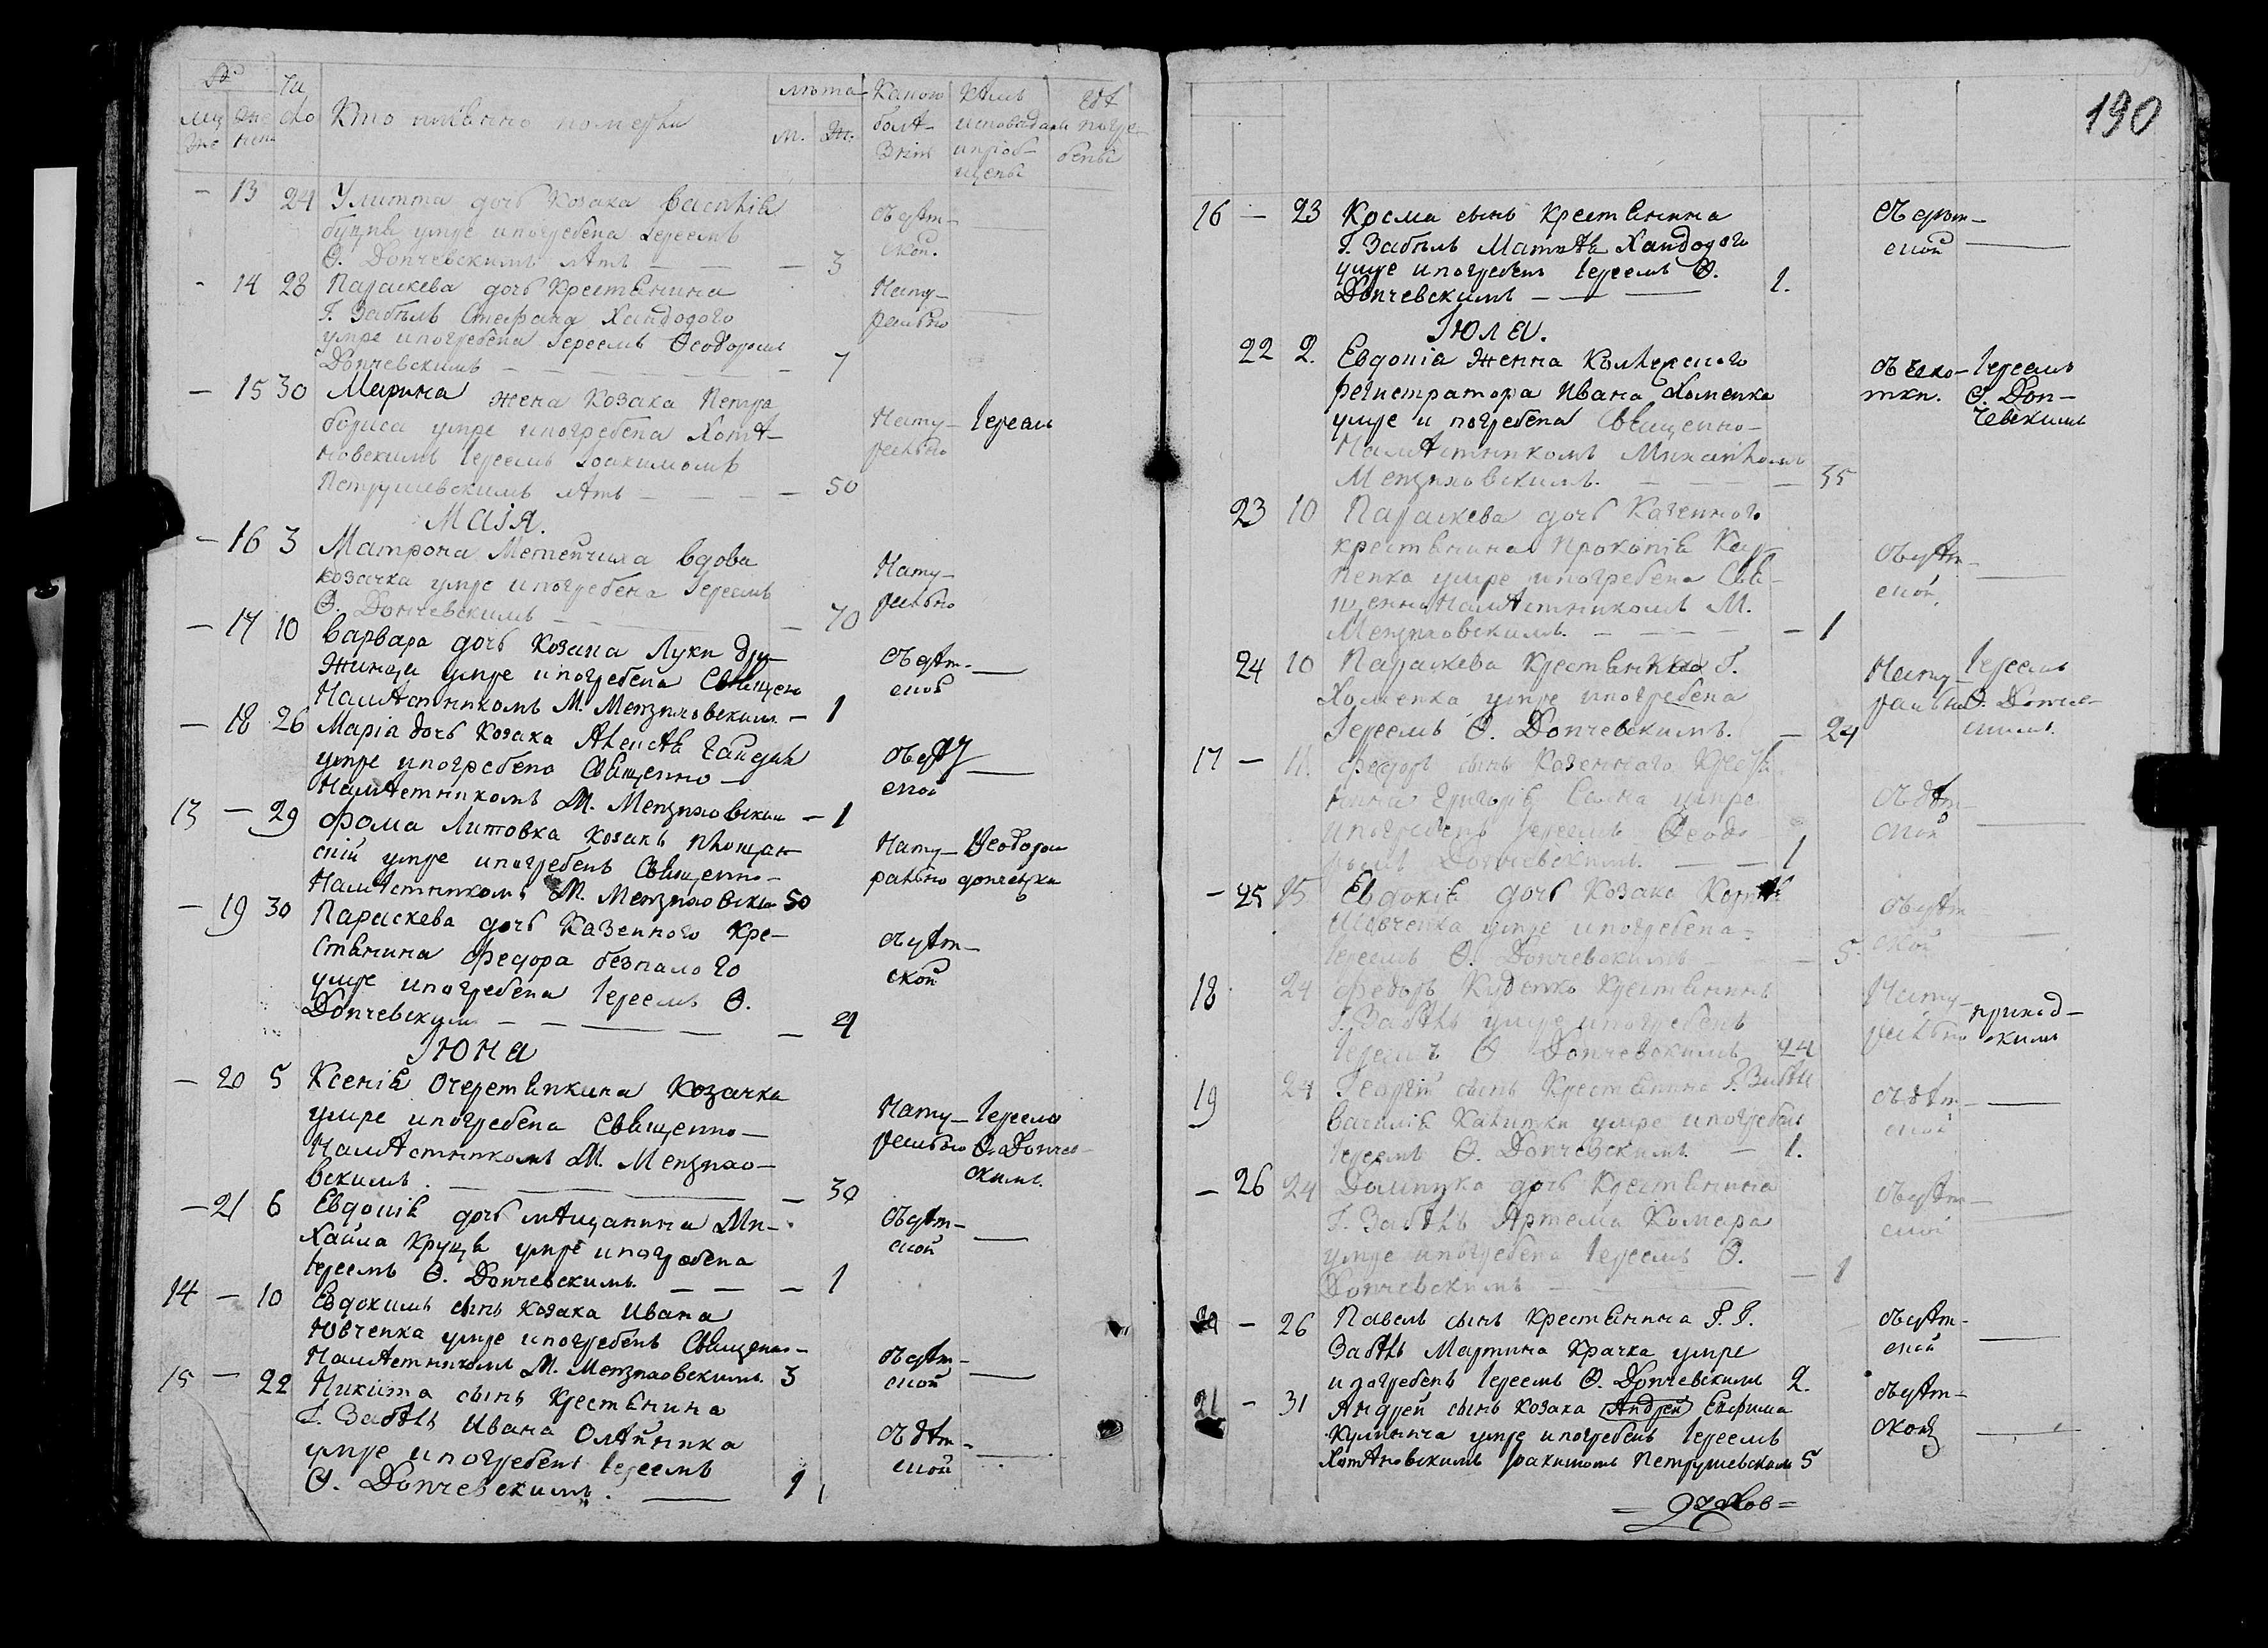 Чи
сло
лѣта
Какою
Кѣмъ
Гдѣ
му
же
Кто имянно померли
м.
ж.
болѣ-
исповѣданы
погре-
жска
нска
знію
и пріоб-
бены
щены
— 13 24 Улитта дочь Козака Василія
умре и погребена Іереемъ
Ѳ. Допчевскимъ лѣтъ — — — 3
съ рѣт-
ской.
— 14 28 Параскева дочь Крестянина
Г. Забѣлъ Стефана Хандодого
умре и погребена Іереемъ Ѳеодоромъ
Допчевскимъ — — — 7
Нату-
рально
— 15 30 Марина жена Козака Петра
бориса умре и погребена Хотѣ-
новскимъ Іереемъ Іоакимомъ
Петрушевскимъ лѣтъ — — — 50
Нату-
рально
Іереемъ
Маія.
— 16 3 Матрона Метейчиха вдова
козачка умре и погребена Іереемъ
Ѳ. Допчевскимъ — — 70
Нату-
рально
— 17 10 Варвара дочь Козака Луки Дру-
жинца умре и погребена Священо
Намѣстникомъ М. Мензиловским — 1
съ рѣт-
ской
— 18 26 Марія дочь Козака Алексѣя
умре и погребена Священно-
Намѣстникомъ М. Мензиловским — 1
съ рѣт
ской
13 — 29 Фома Литовка Козакъ
скій умре и погребенъ Священно-
Намѣстникомъ М. Мензиловским 50
Нату-
рально
Ѳеодоромъ
— 19 30 Параскева дочь Казенного Кре-
стянина Федора безпалого
умре и погребена Іереемъ Ѳ.
Допчевскимъ — — — 4
съ рѣт-
ской
Іюна
— 20 5 Ксенія Очеретянкина Козачка
умре и погребена Священно-
Намѣстникомъ М. Мензило-
вскимъ. — — 30
Нату-
рально
Іереемъ
Ѳ. Допчев-
скимъ.
— 21 6 Евдокія дочь мѣщанина Ми-
хайла умре и погребена
Іереемъ Ѳ. Допчевскимъ — — — 1
съ рѣт-
ской
14 — 10 Евдокимъ сынъ козака Ивана
Ювченка умре и погребенъ Священно-
Намѣстникомъ М. Мензиловскимъ 3
съ рѣт-
ской
15 — 22 Никита сынъ Крестянина
Г. Забѣлъ Ивана Олѣйника
умре и погребенъ Іереемъ
Ѳ. Допчевскимъ. — 1
съ дѣт-
ской
190
16 — 23 Косма сынъ Крестянина
Г. Забѣлъ Матвѣя Хандодого
умре и погребенъ Іереемъ Ѳ.
Допчевскимъ — — — 1.
съ рѣт-
ской
Іюла.
22 2. Евдокіа женна Колѣжского
регистратора Ивана Хоменка
умре и погребена Священно-
Намѣстникомъ Михайломъ
Мензиловскимъ. — — — 35
Іереемъ
Ѳ. Доп-
чевскимъ
23 10 Параскева дочь Казенного
крестянина Прокопія
умре и погребена Свя-
щенноНамѣстникомъ М.
Мензиловскимъ. — — — 1
съ рѣт-
ской.
24 10 Параскева Крестянка Г.
Хоменка умре и погребена
Іереемъ Ѳ. Допчевскимъ. — 24
Нату-
рально
Іереемъ
Ѳ. Допчев-
скимъ.
17 — 11. Федоръ сынъ Казенного Крестя-
нина Григорія умре
и погребенъ Іереемъ Ѳеодо-
ромъ Допчевскимъ. — — 1
съ дѣт-
ской
— 25 15 Евдокія дочь Козака
Шевченка умре и погребена
Іереемъ Ѳ. Допчевскимъ — — 5
съ рѣт-
ской
18 24 Федоръ Куденко Крестянинъ
Г. Забѣлъ умре и погребенъ
Іереемъ Ѳ. Допчевскимъ 44
Нату-
рально
приход-
скимъ
19 24 Георгій сынъ Крестянина Г. Забѣл
Василія умре и погребенъ
Іереемъ Ѳ. Допчевскимъ. — 1.
съ дѣт-
ской
— 26 24 Домникa дочь Крестянина
Г. Забѣлъ Артема Комара
умре и погребена Іереемъ Ѳ.
Допчевскимъ — — — 1
съ рѣт-
ской
20 — 26 Павелъ сынъ Крестянина Г. Г.
Забѣлъ Мартина Крачка умре
и погребенъ Іереемъ Ѳ. Допчевскимъ 2.
съ рѣт-
ской
21 — 31 Андрей сынъ Козака Андрей Евфима
умре и погребенъ Іереемъ
Хотѣновскимъ Іоакимомъ Петрушевским 5
съ рѣт-
ской